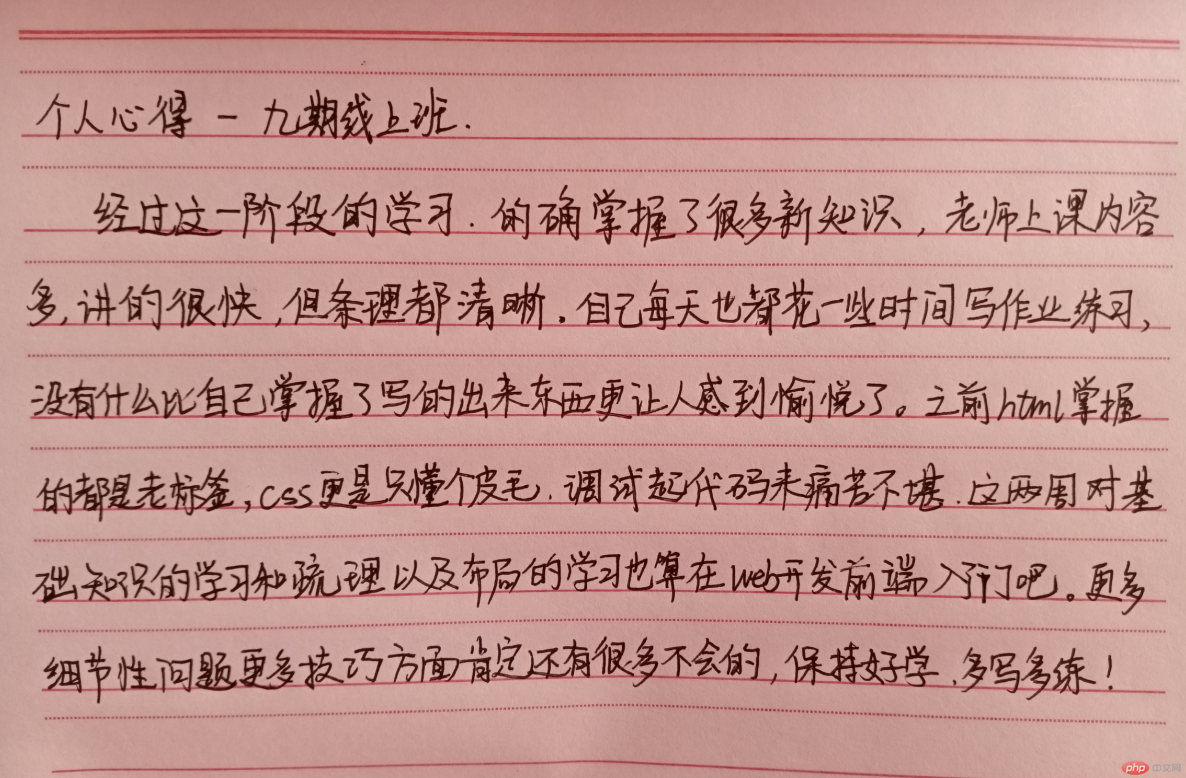 个人心得 - 九期线上班.
经过这一阶段的学习. 的确掌握了很多新知识, 老师上课内容
多, 讲的很快, 但条理都清晰. 自己每天也都花一些时间写作业练习,
没有什么比自己掌握了写的出来东西更让人感到愉悦了。之前html掌握
的都是老标签, css更是只懂个皮毛. 调试起代码来痛苦不堪. 这两周对基
础知识的学习和疏理以及布局的学习也算在web开发前端入了门吧。更多
细节性问题更多技巧方面肯定还有很多不会的, 保持好学. 多写多练!
php 中文网